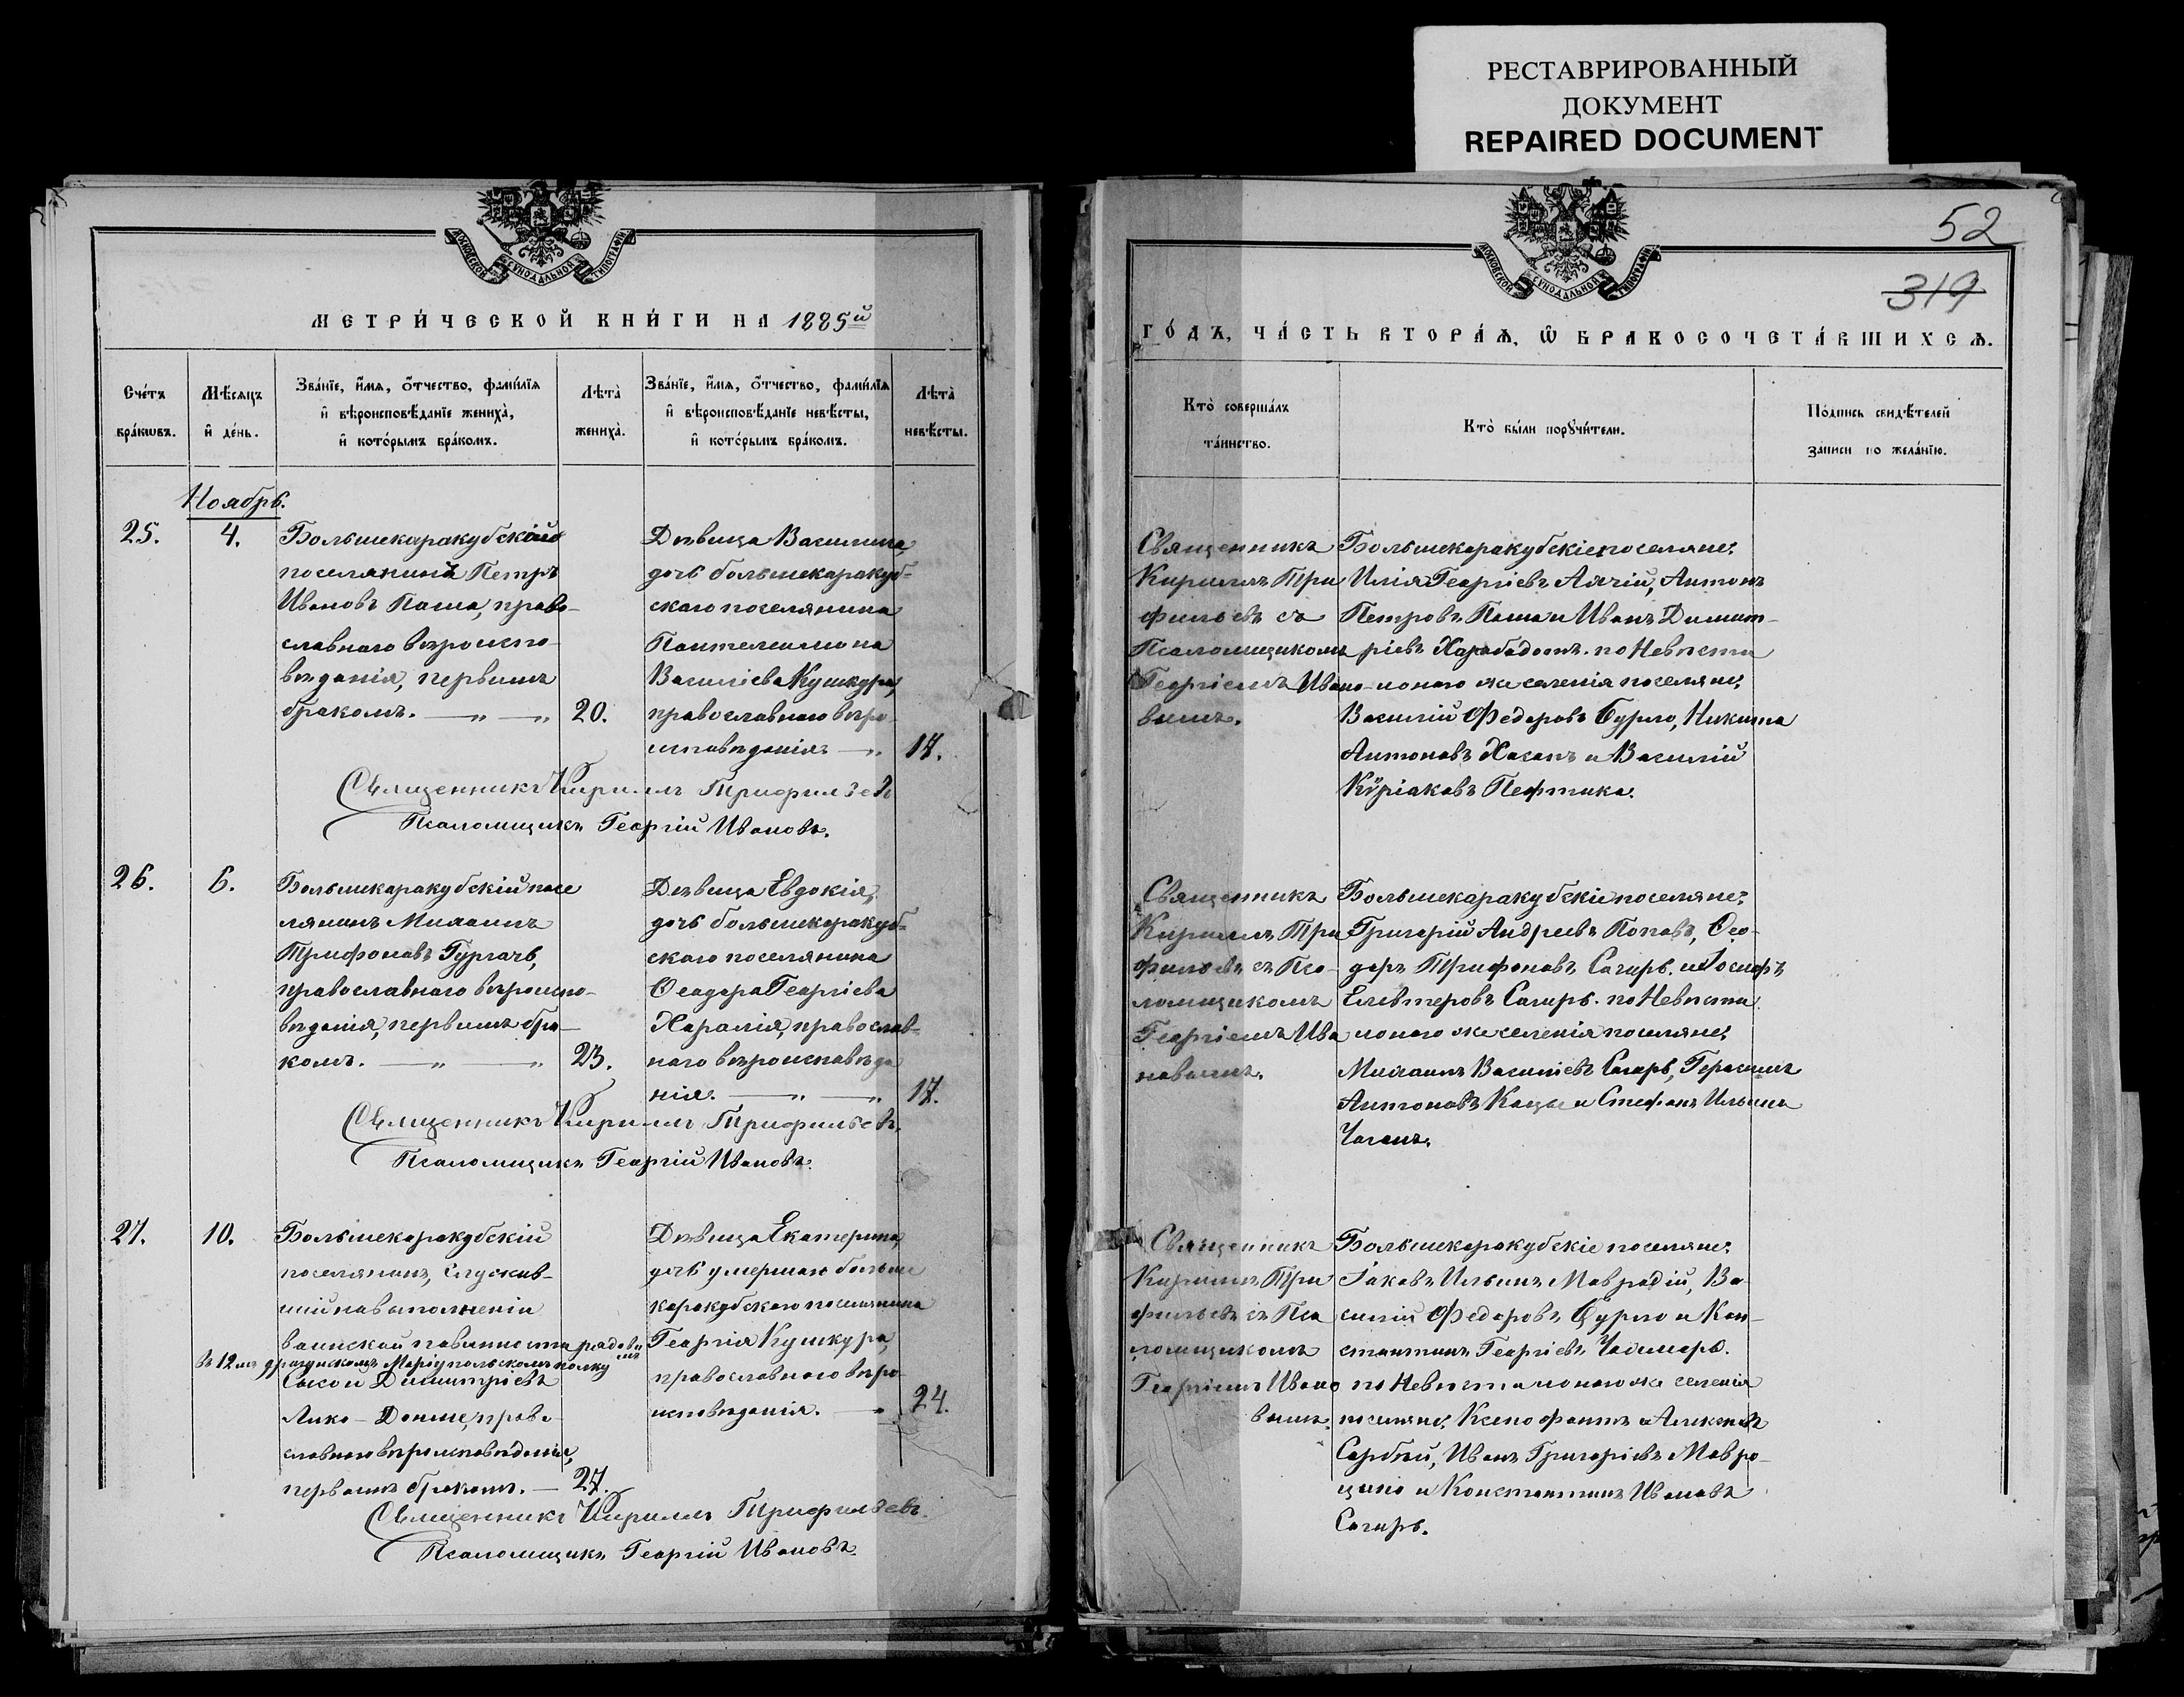 РЕСТАВРИРОВАННЫЙ
ДОКУМЕНТ
REPAIRED DOCUMENT
МОСКОВСКОЙ СУНОДАЛЬНОЙ ТИПОГРАФІИ
МЕТРИ́ЧЕСКОЙ КНИ́ГИ НА 1885й
Сче́тъ
бра́кѡвъ.
Мѣ́сяцъ
и҆ де́нь.
Зва́нїе, и҆́мѧ, о҆́тчество, фами́лїѧ
и҆ вѣроисповѣ́данїе жениха̀,
и҆ кото́рымъ бра́комъ.
Лѣ́та
жениха̀.
Зва́нїе, и҆́мѧ, о҆́тчество, фами́лїѧ
и҆ вѣроисповѣ́данїе невѣ́сты,
и҆ кото́рымъ бра́комъ.
Лѣ́та
невѣ́сты.
Ноябрь.
25.
4.
Большекаракубскій
поселянинъ Петръ
Ивановъ Паша, право-
славнаго вѣроиспо-
вѣданія, первымъ
бракомъ. — „ — „
20.
Дѣвица Василиса,
дочь большекаракуб-
скаго поселянина
Пантелеимона
Василіева Кушкура,
православнаго вѣро-
исповѣданія. — „
17.
Священникъ Кириллъ Трифильевъ
Псаломщикъ Георгій Ивановъ.
26.
6.
Большекаракубскій посе
лянинъ Михаилъ
Трифоновъ Гургачь,
православнаго вѣроиспо-
вѣданія, первымъ бра-
комъ. — „ — „
23.
Дѣвица Евдокія,
дочь большекаракуб-
скаго поселянина
Ѳеодора Георгіева
Харалія, православ-
наго вѣроисповѣда
нія. — „ — „
17.
Священникъ Кириллъ Трифильевъ.
Псаломщикъ Георгій Ивановъ.
27.
10.
Большекаракубскій
поселянинъ, служив-
шій на выполненіи
воинской повинности рядовымъ
въ 12мъ драгунскомъ Маріупольскомъ полку
Димитріевъ
православнаго вѣроисповѣданія,
первымъ бракомъ. —
27.
Дѣвица Екатерина,
дочь умершаго больше
каракубскаго поселянина
Георгія Кушкура,
православнаго вѣро
исповѣданія. —
24.
Священникъ Кириллъ Трифильевъ.
Псаломщикъ Георгій Ивановъ.
52
319
МОСКОВСКОЙ СУНОДАЛЬНОЙ ТИПОГРАФІИ
ГО́ДЪ, ЧА́СТЬ ВТОРА́Ѧ, Ѽ БРАКОСОЧЕТА́ВШИХСѦ.
Кто̀ соверша́лъ
та́инство.
Кто̀ бы́ли порꙋчи́тели.
По́дпись свидѣ́телей
записи по жела́нїю.
Священникъ
Кириллъ Три
фильевъ съ
Псаломщикомъ
Георгіемъ Ивано-
вымъ.
Большекаракубскіе поселяне:
Илія Георгіевъ Алчій, Антонъ
Петровъ Паша и Иванъ Димит-
ріевъ по Невѣстѣ
тогоже селенія поселяне:
Василій Ѳедоровъ Бурло, Никита
Антоновъ Хасапъ и Василій
Кѵріаковъ Пефтика.
Священникъ
Кириллъ Три
фильевъ съ Пса-
ломщикомъ
Георгіемъ Ива
новымъ.
Большекаракубскіе поселяне:
Григорій Андреевъ Поповъ, Ѳео-
доръ Трифоновъ Сагиръ и Іосифъ
Елевтеровъ Сагиръ. по Невѣстѣ
тогоже селенія поселяне:
Михаилъ Василіевъ Сагиръ, Герасимъ
Антоновъ Кацы и Стефанъ Ильинъ
Священникъ
Кириллъ Три
фильевъ съ Пса
ломщикомъ
Георгіемъ Ивано
вымъ.
Большекаракубскіе поселяне:
Іаковъ Ильинъ Мавродій, Ва-
силій Ѳедоровъ Бурло и Кон-
стантинъ Георгіевъ
по Невѣстѣ тогоже селенія
поселяне: Ксенофонтъ Алексѣевъ
Сарбей, Иванъ Григоріевъ
и Константинъ Ивановъ
Сагиръ.